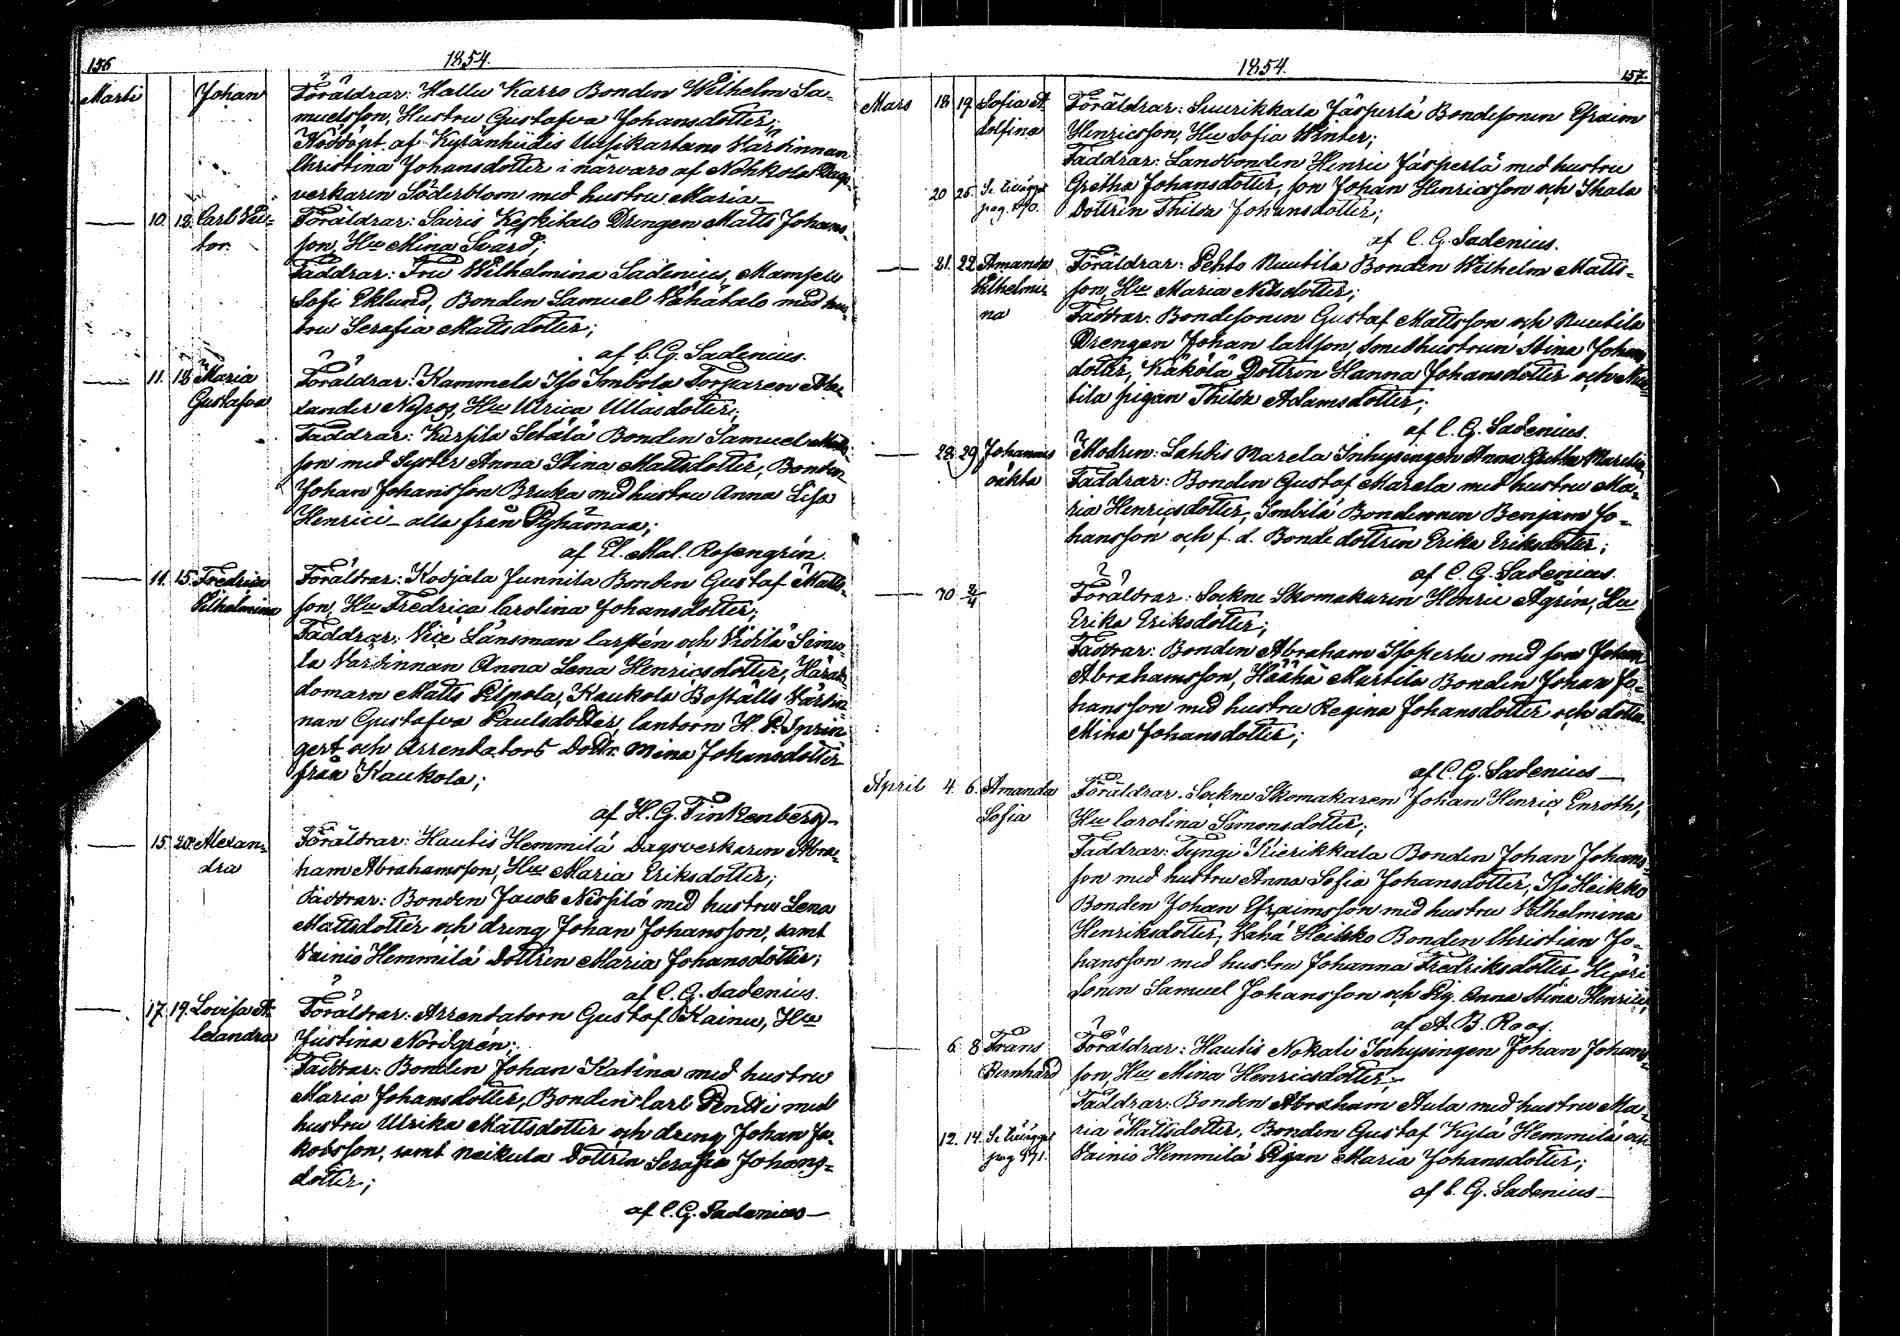 156
1854.
Marti Johan Föräldrar: Hallu Karro Bonden Wilhelm Sa-
muelsson, Hustru Gustafva Johansdotter;
Nöddöpt af Kylänhiidis Uusikartano Värdinnan
Christina Johansdotter i närvaro af Nohkola Dags-
verkaren Söderblom med hustru Maria—
10. 12. Carl Vic- Föräldrar: Sairis Keskitalo Drengen Matts Johans-
tor. son, Hu Mina Svärd;
Faddrar: Fru Wilhelmina Sadenius, Mamsell
Sofi Eklund, Bonden Samuel Vähätalo med hus-
tru Serafia Mattsdotter;
af C. G. Sadenius.
11. 12 Maria Föräldrar: Kammela Iso Imbola Torparen Ale-
Gustafva xander Nyroos, Hu Ulrica Ullasdotter;
Faddrar: Kursila Setälä Bonden Samuel Matts-
son med Syster Anna Stina Mattsdotter, Bonden
Johan Johansson Bruka med hustru Anna Lisa
Henrici— alla från Pyhämaa;
af El. Mal. Rosengrén.
11. 15. Fredrica Föräldrar: Kodjala Junnila Bonden Gustaf Matts-
Vilhelmina son, Hu Fredrica Carolina Johansdotter;
Faddrar: Vice Länsman Carstén och Vidilä Simu-
la Värdinnan Anna Lena Henricsdotter, Härads-
domarn Matts Pilpola, Kaukola Boställs Värdin-
nan Gustafva Paulsdotter, Cantorn H. P. Sprin-
gert och Arrendators Dottr. Mina Johansdotter
från Kaukola;
af H. G. Tinkenberg—
15. 20. Alexan- Föräldrar: Hautis Hemmilä Dagsverkaren Abra-
dra ham Abrahamsson, Hu Maria Eriksdotter;
Faddrar: Bonden Jacob Nispilä med hustru Lena
Mattsdotter och dreng Johan Johansson, samt
Vainio Hemmilä Dottren Maria Johansdotter;
af C. G. Sadenius.
17. 19. Lovisa A- Föräldrar: Arrendatorn Gustaf Kainu, Hu
lexandra Justina Nordgrén;
Faddrar: Bonden Johan Katina med hustru
Maria Johansdotter, Bonden Carl Pentti med
hustru Ulrika Mattsdotter och dreng Johan Ja-
kobsson, samt Neikula Dottren Serafia Johans-
dotter;
af C. G. Sadenius—
1854.
157.
Mars 18 19. Sofia A- Föräldrar: Suurikkala Jäsperlä Bondesonen Efraim
dolfina Henricsson, Hu Sofia Winter;
Faddrar: Landbonden Henric Jäsperlä med hustru
20 25. Se tillägget Gretha Johansdotter, son Johan Henricsson och Ihala
pag. Dottren Thilda Johansdotter;
af C. G. Sadenius.
21. 22. Amanda Föräldrar: Pehto Nuutila Bonden Wilhelm Matts-
Vilhelmi- son, Hu Maria Nilsdotter;
na Faddrar: Bondesonen Gustaf Mattsson och Nuutila
Drengen Johan Larsson, Smedhustrun Stina Johans-
dotter, Käkölä Dottren Hanna Johansdotter och Nuu-
tila pigan Thilda Adamsdotter;
af C. G. Sadenius.
28. 29 Johannes Modren: Lahtis Marela Inhysingen Anna Gretha Marelia
oäkta Faddrar: Bonden Gustaf Marela med hustru Ma-
ria Henricsdotter, Imbilä Bondesonen Benjam Jo-
hansson och f. d. Bondedottren Erika Eriksdotter;
af C. G. Sadenius.
30 2/4 Föräldrar: Sockne Skomakaren Henric Agrén, Hu
Erika Eriksdotter;
Faddrar: Bonden Abraham Isoperhe med son Johan
Abrahamsson, Häähä Martila Bonden Johan Jo-
hansson med hustru Regina Johansdotter och dotter
Mina Johansdotter;
af C. G. Sadenius—
April 4. 6. Amanda Föräldrar. Sockne Skomakaren Johan Henric Enroth,
Sofia Hu Carolina Simonsdotter;
Faddrar: Tyngi Kierikkala Bonden Johan Johans-
son med hustru Anna Sofia Johansdotter, Iso Heikko
Bonden Johan Efraimsson med hustru Vilhelmina
Henriksdotter, Vähä Heikko Bonden Christian Jo-
hansson med hustru Johanna Fredriksdotter,
sonen Samuel Johansson och Pig. Anna Stina Henrici;
af A. B. Roos.
6. 8 Frans Föräldrar: Hautis Nokali Inhysingen Johan Johans-
Bernhard son, Hu Mina Henricsdotter;
Faddrar: Bonden Abraham Aula med hustru Ma-
12. 14. Se tillägget ria Mattsdotter, Bonden Gustaf Kylä Hemmilä och
pag. Vainio Hemmilä Pigan Maria Johansdotter;
af C. G. Sadenius—